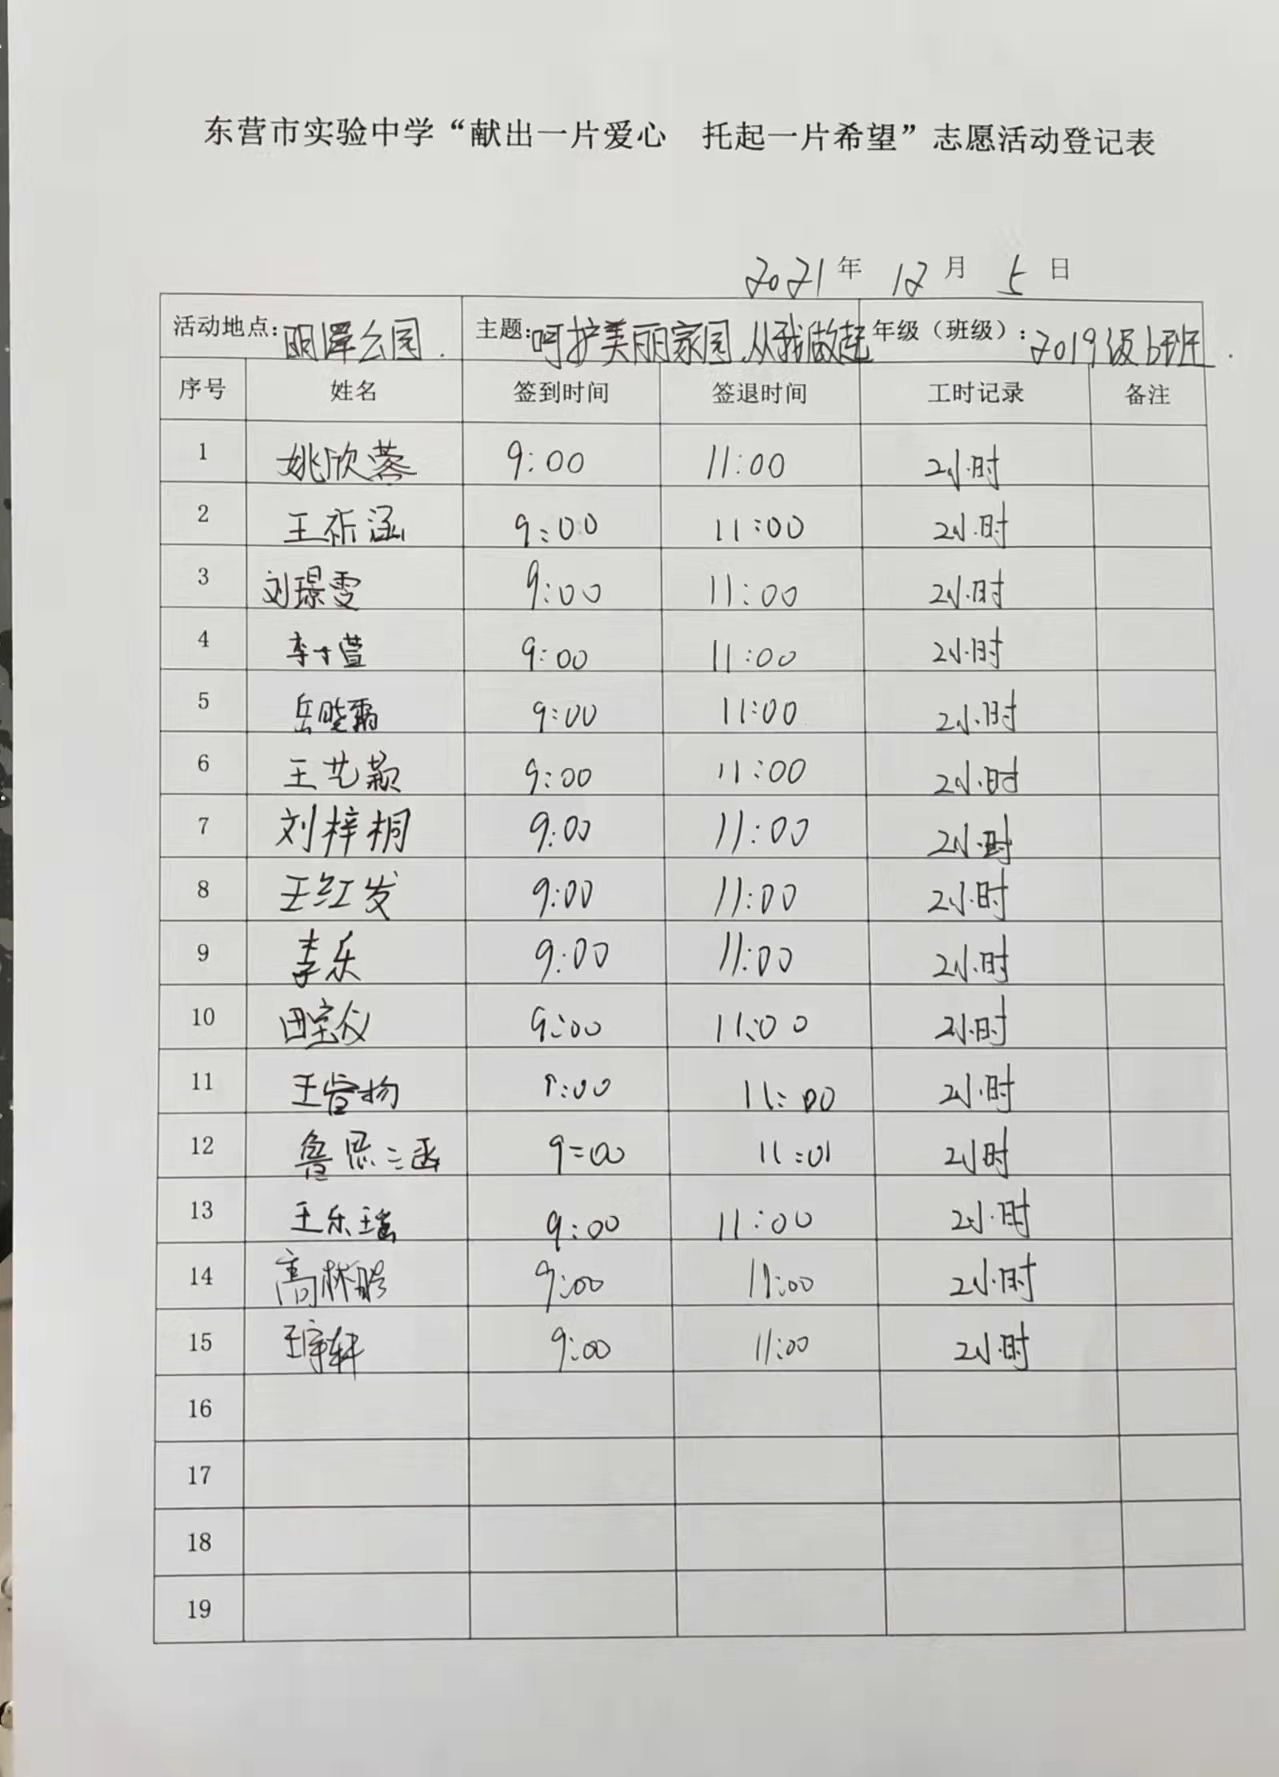 东营市实验中学“献出一片爱心 托起一片希望”志愿活动登记表
2021年 12月 5日
活动地点：明泽公园. 主题：呵护美丽家园,从我做起 年级（班级）：2019级6班.
序号 姓名 签到时间 签退时间 工时记录 备注
1 姚欣蓉 9:00 11:00 2小时
2 王祈涵 9:00 11:00 2小时
3 刘璟雯 9:00 11:00 2小时
4 李十萱 9:00 11:00 2小时
5 岳晓霜 9:00 11:00 2小时
6 王艺颖 9:00 11:00 2小时
7 刘梓桐 9:00 11:00 2小时
8 王红发 9:00 11:00 2小时
9 李乐 9:00 11:00 2小时
10 田宝仪 9:00 11:00 2小时
11 9:00 11:00 2小时
12 鲁思涵 9:00 11:01 2小时
13 王乐瑶 9:00 11:00 2小时
14 9:00 11:00 2小时
15 王宇轩 9:00 11:00 2小时
16
17
18
19